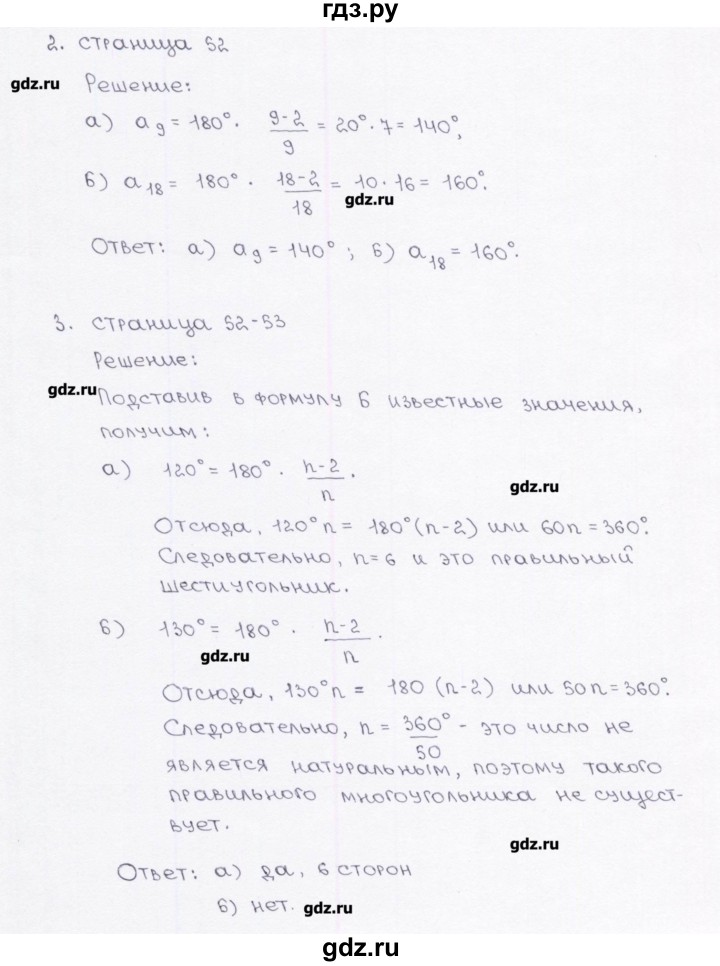 гдз.ру
2. страница 52
gdz.ru Решение:
а) a₉ = 180°· 9-2/9 = 20°·7 = 140°,
б) a₁₈ = 180° · 18-2/18 = 10·16 = 160°.
gdz.ru
Ответ: а) a₉ = 140° ; б) a₁₈ = 160°.
3. страница 52-53
Решение:
gdz.ru
Подставив в формулу 6 известные значения,
получим:
а) 120° = 180° · n-2/n .
gdz.ru
Отсюда, 120°n = 180°(n-2) или 60n = 360°.
Следовательно, n=6 и это правильный
шестиугольник.
б) 130° = 180° · n-2/n .
gdz.ru
Отсюда, 130°n = 180 (n-2) или 50n = 360°.
Следовательно, n = 360°/50 - это число не
является натуральным, поэтому такого
правильного многоугольника не сущест-
вует.
gdz.ru
Ответ: а) да, 6 сторон
б) нет. gdz.ru
gdz.ru